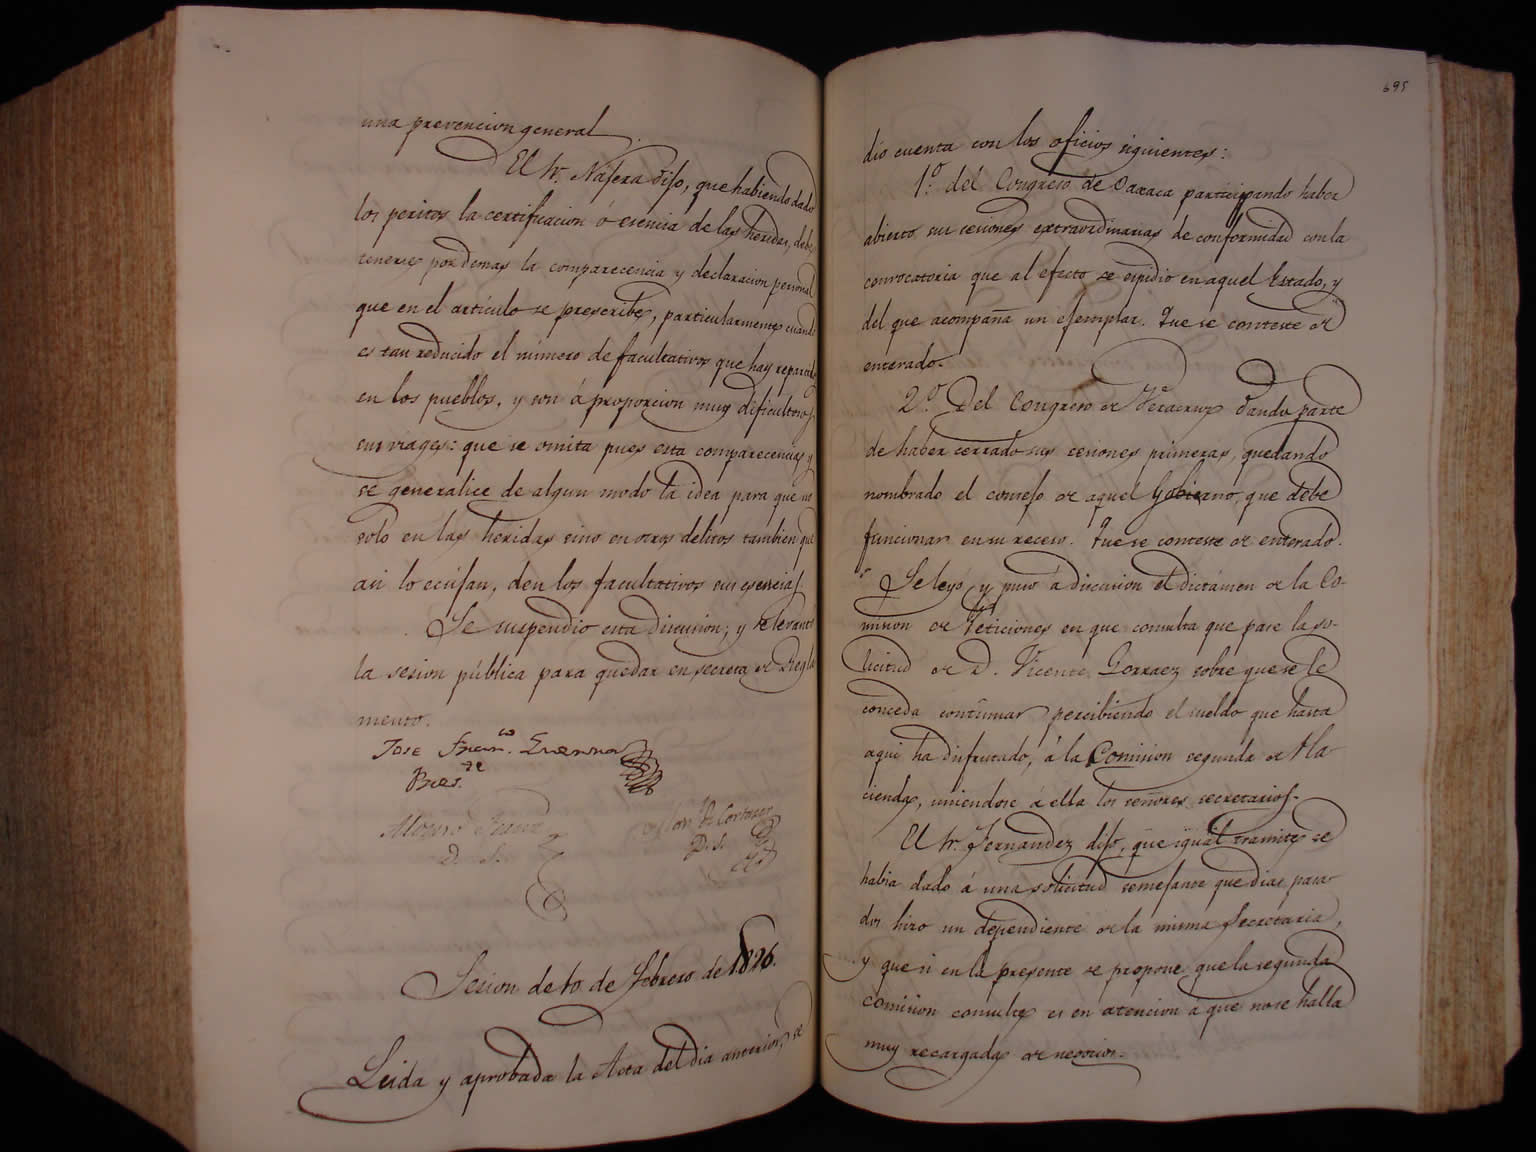 una prevencion general.
El Sr. Nájera dijo, que habiendo dado
los peritos la certificacion ó esencia de las heridas, debe
tenerse por demas la comparecencia y declaracion personal
que en el artículo se prescribe, particularmente cuando
es tan reducido el número de facultativos que hay repartido
en los pueblos, y son á proporcion muy dificultosos
sus viages: que se omita pues esta comparecencia y
se generalice de algun modo la idea para que no
solo en las heridas sino en otros delitos tambien que
asi lo ecsijan, den los facultativos sus esencias.
Se suspendio esta discusion, y se levantó
la sesion pública para quedar en secreta de Regla
mento.
Jose Fran.co Guerra
Pres.te
D. S.
D. S.
Sesion de 10 de Febrero de 1826.
Leida y aprobada la Acta del dia anterior, se
695
dio cuenta con los oficios siguientes:
1.º del Congreso de Oaxaca participando haber
abierto sus cesiones extraordinarias de conformidad con la
convocatoria que al efecto se espidio en aquel Estado, y
del que acompaña un ejemplar. Que se conteste de
enterado.
2.º Del Congreso de Veracruz dando parte
de haber cerrado sus cesiones primeras, quedando
nombrado el consejo de aquel Gobierno, que debe
funcionar en su receso. Que se conteste de enterado.
Se leyó y puso á discusion el dictámen de la Co-
mision de Peticiones en que consulta que pase la so-
licitud de D. Vicente Gorraez sobre que se le
conceda continuar percibiendo el sueldo que hasta
aqui ha disfrutado, á la Comision segunda de Ha-
cienda, uniendose á ella los señores secretarios.
El Sr. Fernandez dijo, que igual tramite se
habia dado á una solicitud semejante que dias pasa-
dos hizo un dependiente de la misma Secretaria,
y que si en la presente se propone que la segunda
comision consulte es en atencion a que no se halla
muy recargada de negocios.